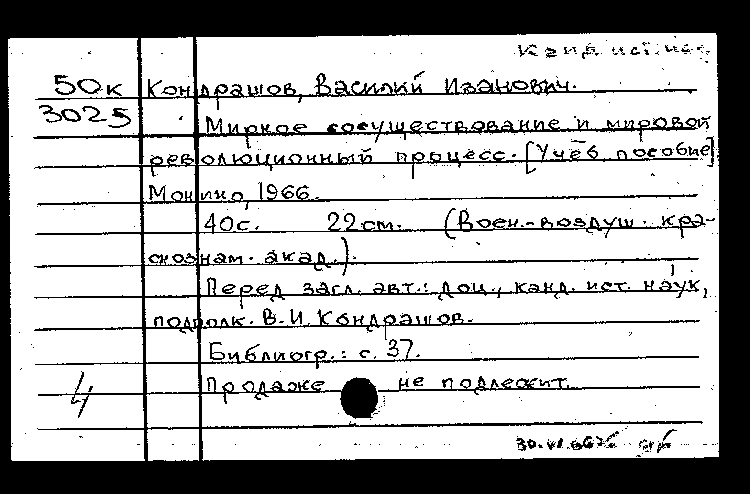 50к Кондрашов, Василий Иванович.
3025 Мирное сосуществование и мировой
революционный процесс. [Учеб. пособие]
Монино, 1966.
40с. 22см. (Воен.-воздуш. кра-
снознам. акад.).
Перед загл. авт.: доц., канд. ист. наук,
подполк. В.И. Кондрашов.
Библиогр.: с. 37.
4 Продаже не подлежит.